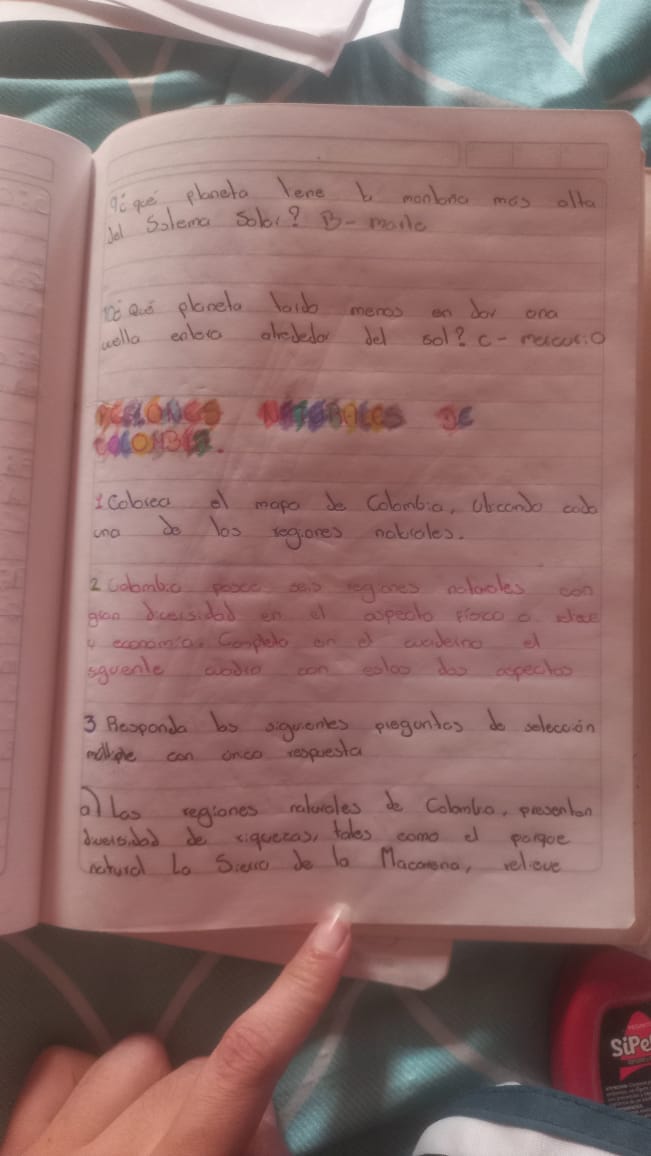 9¿ qué planeta tene la montaña mas alta
del Sistema Solar? B- marte
10¿ Qué planeta tarda menos en dar una
vuelta entera alrededor del sol? C- mercurio
REGIONES NATURALES DE
COLOMBIA.
1 Colorea el mapa de Colombia, Ubicando cada
una de las regiones naturales.
2 Colombia posee seis regiones naturales con
gran diversidad en el aspecto físico o relieve
y economía. Completa en el cuaderno el
siguente cuadro con estos dos aspectos
3 Responda las siguientes preguntas de selección
múltiple con única respuesta
a) Las regiones naturales de Colombia, presentan
diversidad de riquezas, tales como el parque
natural La Sierra de la Macarena, relieve
SiPe